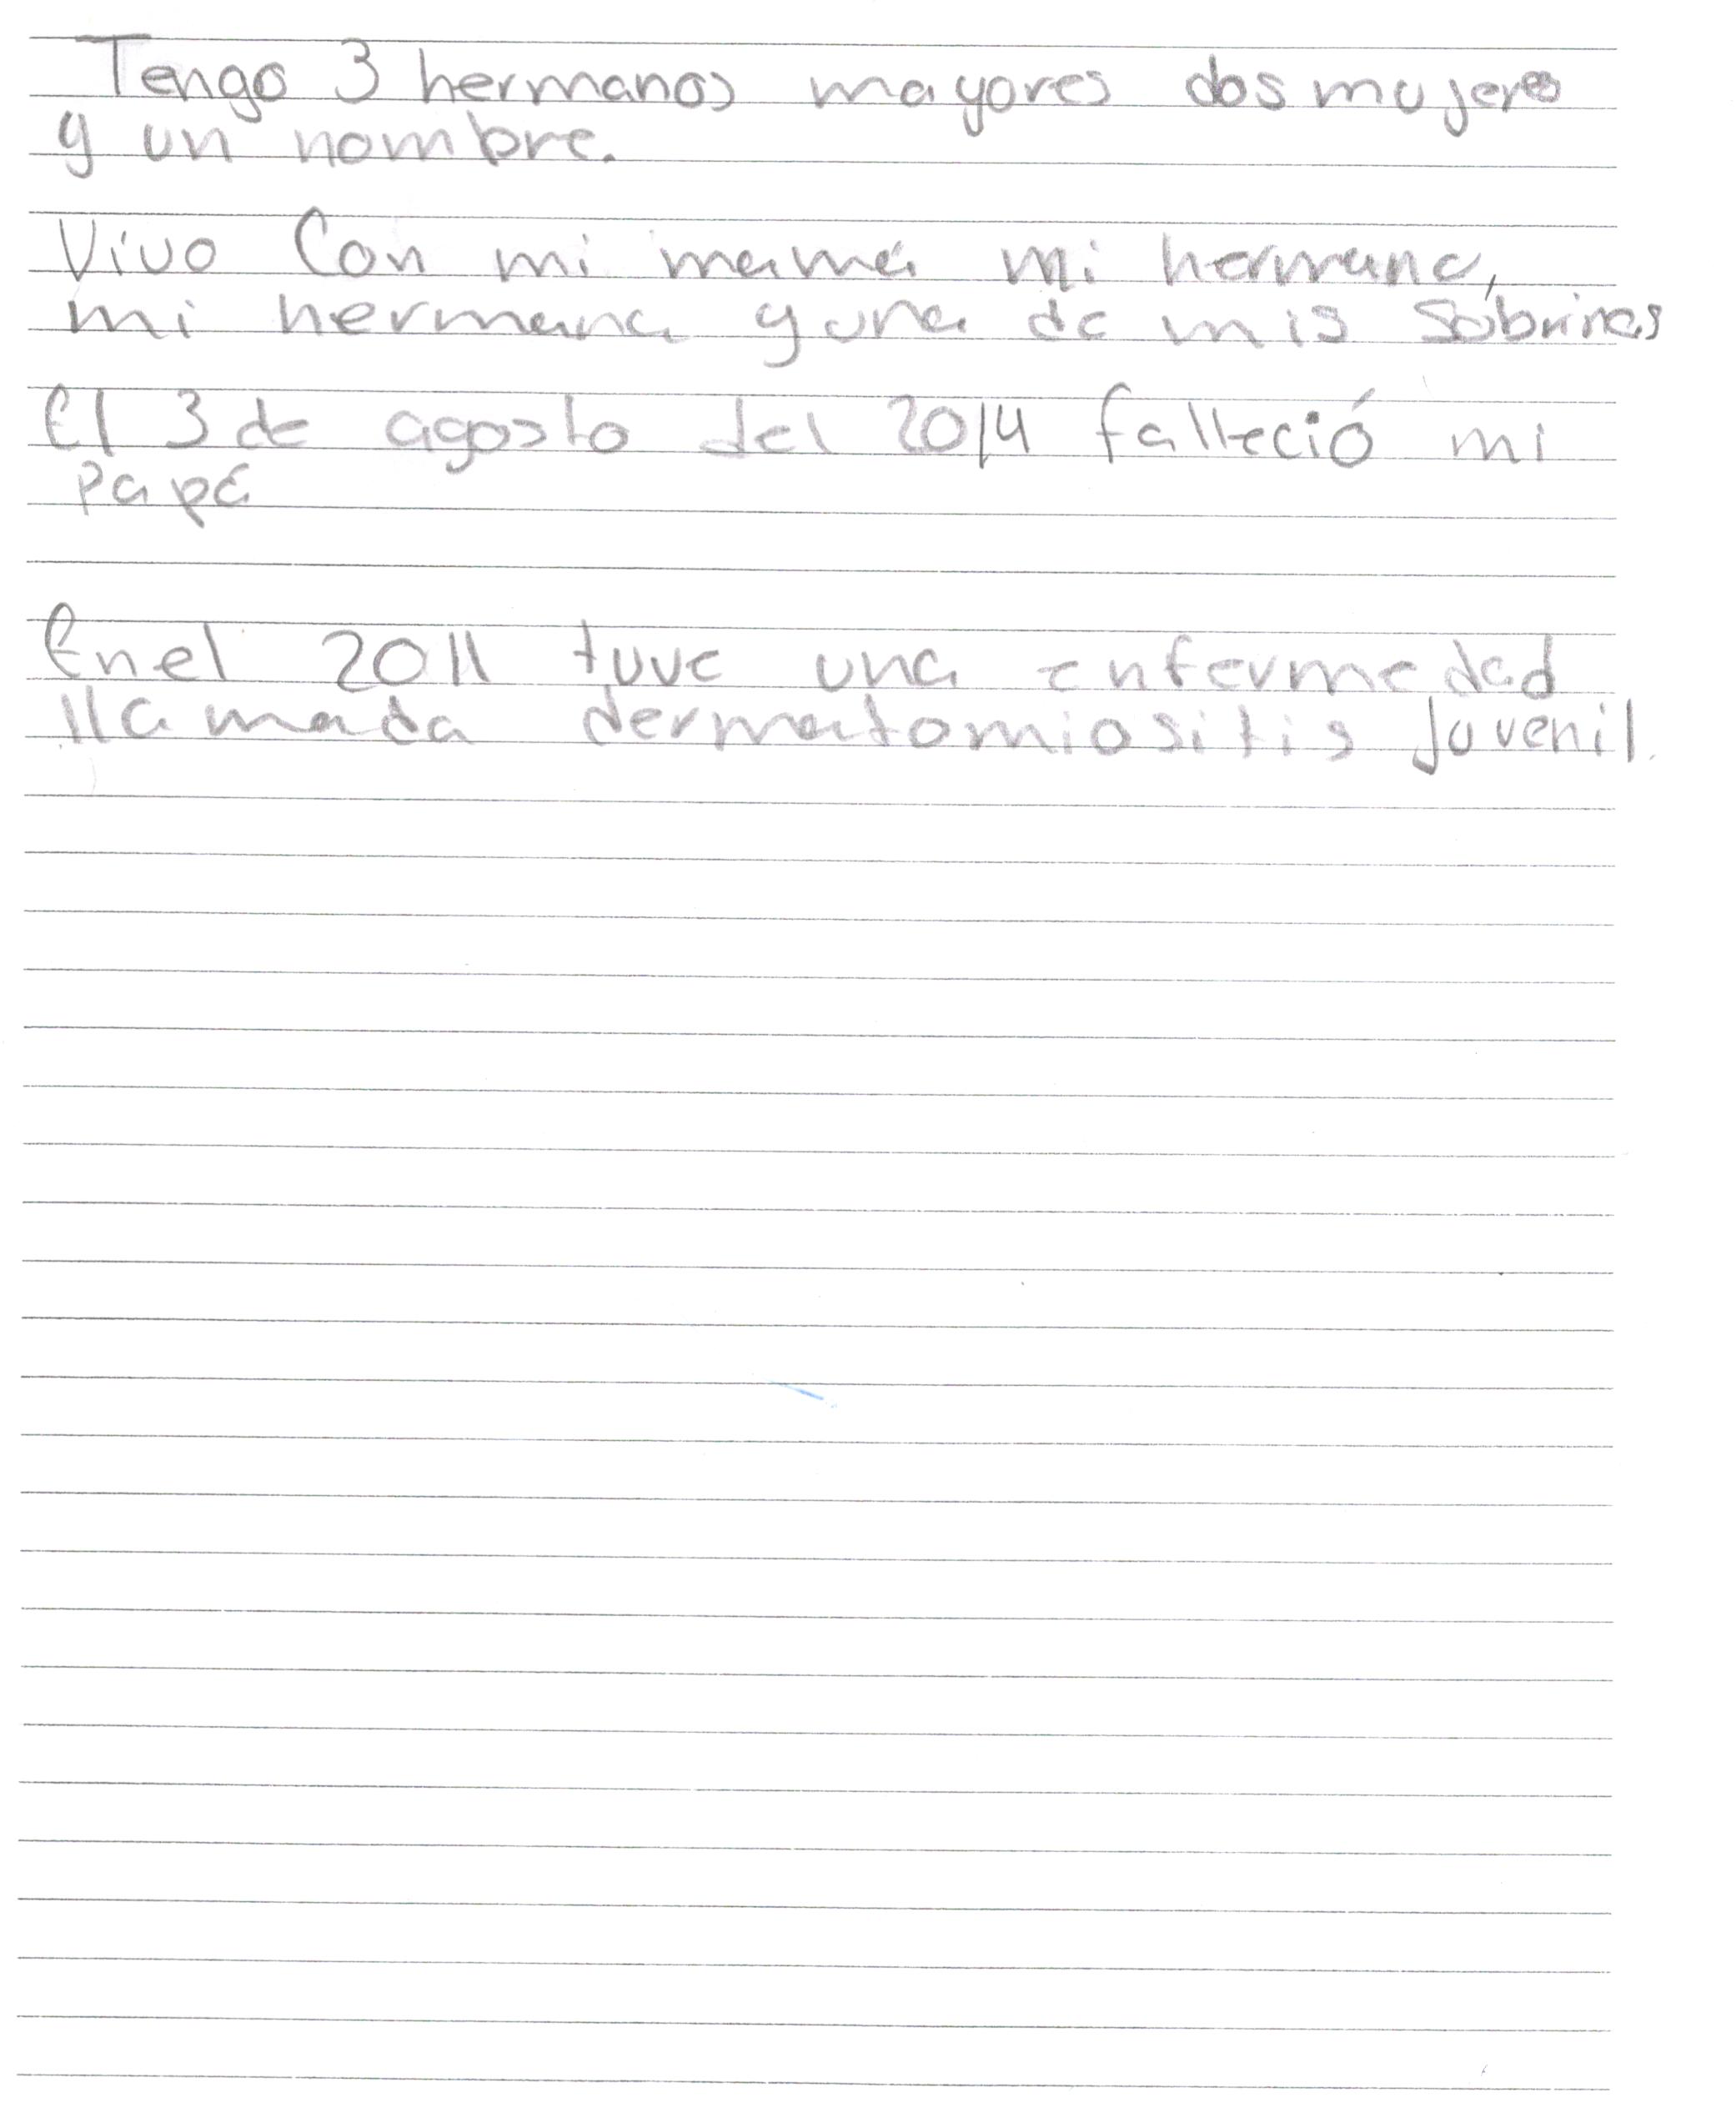 Tengo 3 hermanos mayores dos mujeres
y un hombre.
Vivo Con mi mamá mi hermano,
mi hermana y una de mis Sobrinas
El 3 de agosto del 2014 falleció mi
papá
En el 2011 tuve una enfermedad
llamada dermatomiositis juvenil.